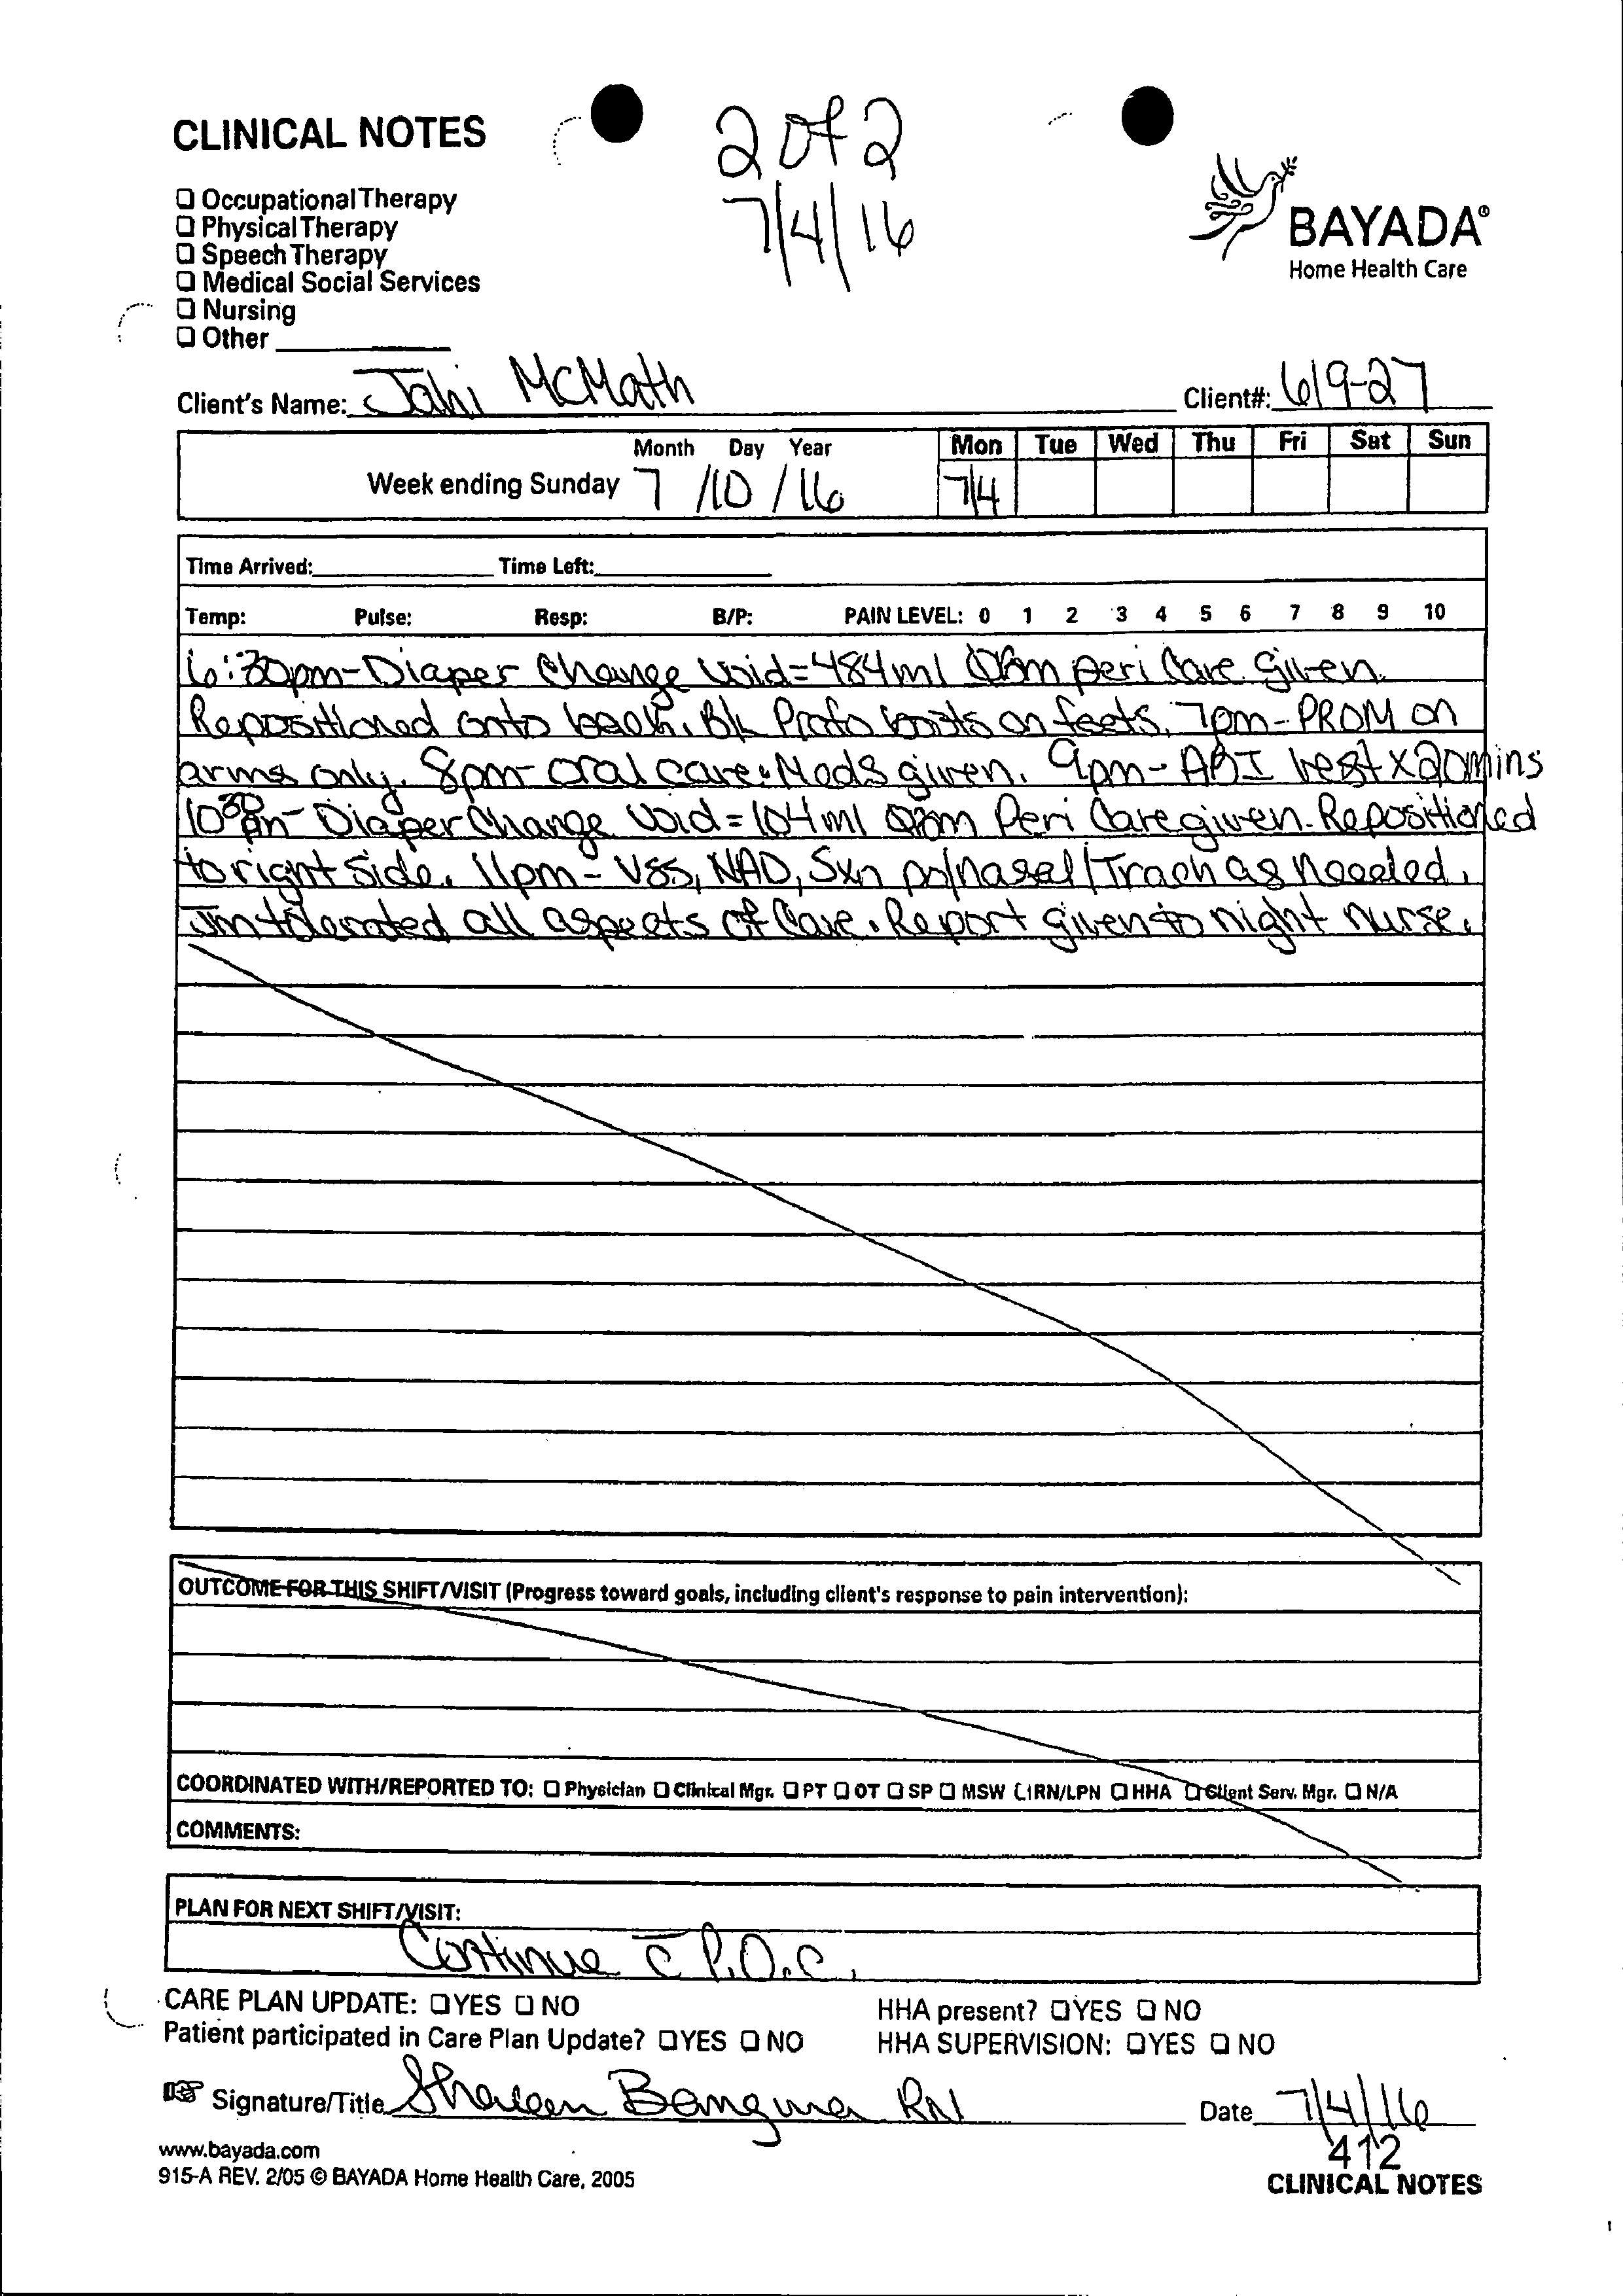 CLINICAL NOTES
2 of 2
7/4/16
❑ Occupational Therapy
❑ Physical Therapy
❑ Speech Therapy
❑ Medical Social Services
❑ Nursing
❑ Other
BAYADA®
Home Health Care
Client's Name: Jahi McMath Client#: 619-27
Month Day Year Mon Tue Wed Thu Fri Sat Sun
Week ending Sunday 7/10/16 7/4
Time Arrived: Time Left:
Temp: Pulse: Resp: B/P: PAIN LEVEL: 0 1 2 3 4 5 6 7 8 9 10
6:30pm - Diaper Change Void = 484ml peri Care given.
Repositioned onto back. Profo boots on feets. 7pm - PROM on
arms only. 8pm - oral care. Meds given. 9pm - vest x 20mins
10:30pm - Diaper Change Void = 104ml Peri Care given. Repositioned
to right side. 11pm - VSS, NAD, Sxn po/nasal/Trach as needed.
Jm tolerated all aspects of Care. Report given to night nurse.
OUTCOME FOR THIS SHIFT/VISIT (Progress toward goals, including client's response to pain intervention):
COORDINATED WITH/REPORTED TO: ❑ Physician ❑ Clinical Mgr. ❑ PT ❑ OT ❑ SP ❑ MSW ❑ RN/LPN ❑ HHA ❑ Client Serv. Mgr. ❑ N/A
COMMENTS:
PLAN FOR NEXT SHIFT/VISIT:
Continue c̄ P.O.C.
CARE PLAN UPDATE: ❑ YES ❑ NO HHA present? ❑ YES ❑ NO
Patient participated in Care Plan Update? ❑ YES ❑ NO HHA SUPERVISION: ❑ YES ❑ NO
Signature/Title Bangura RN Date 7/4/16
www.bayada.com 412
915-A REV. 2/05 © BAYADA Home Health Care, 2005 CLINICAL NOTES